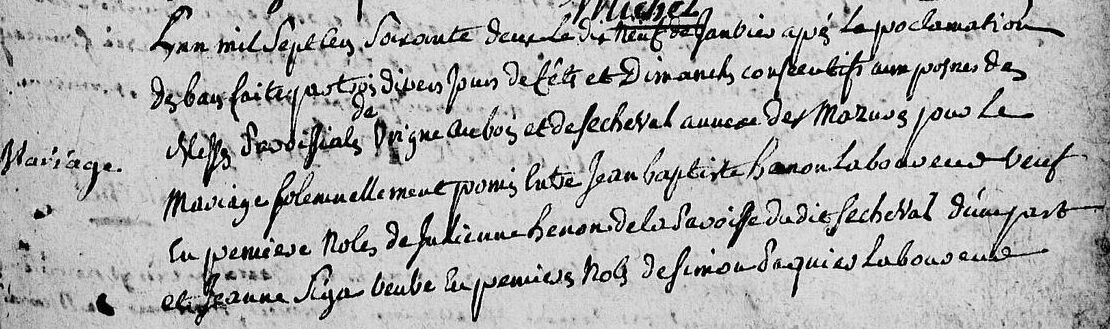 Michel
Lan mil Sept Cens Soixante deux le dix neuf de Janvier apès la proclamation
des bans faites par trois divers Jours de fêtes et Dimanches consecutifs aux prones des
Messes Paroissiales de Vrigne aubois et de Secheval annexe des Mazures pour le
Mariage.
Mariage solemnellement promis Entre Jean baptiste henon Laboureur veuf
En premiere Noces de Julienne henon de la Paroisse dudit Secheval d'une part
et Jeanne veuve En premieres Noces de Simon Laboureur